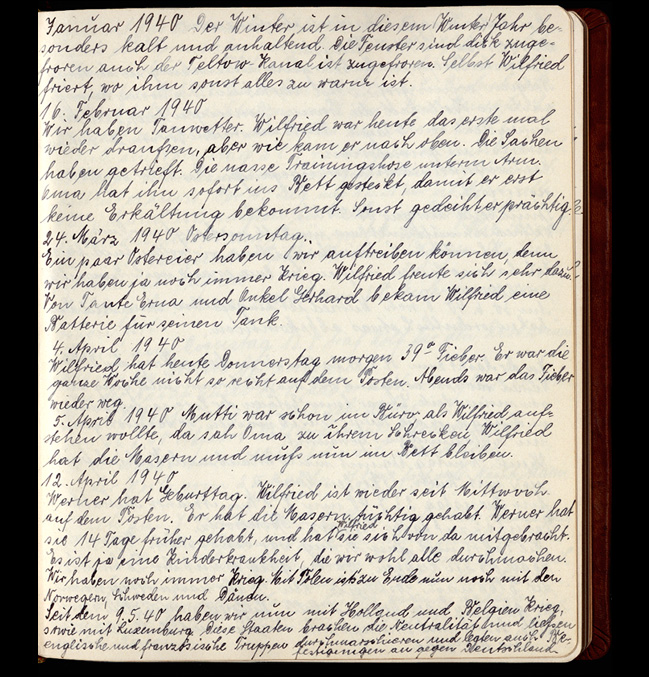 Januar 1940 Der Winter ist in diesem (Winter) Jahr be-
sonders kalt und anhaltend. Die Fenster sind dick zuge-
froren auch der Teltow Kanal ist zugefroren. Selbst Wilfried
friert, wo ihm sonst alles zu warm ist.
16. Februar 1940
Wir haben Tauwetter. Wilfried war heute das erste mal
wieder draußen, aber wie kam er nach oben. Die Sachen
haben getrieft. Die nasse Trainingshose unterm Arm.
Oma hat ihn sofort ins Bett gesteckt, damit er erst
keine Erkältung bekommt. Sonst gedeiht er prächtig.
24. März 1940 Ostersonntag.
Ein paar Ostereier haben wir auftreiben können, denn
wir haben ja noch immer Krieg. Wilfried freute sich sehr dazu.
Von Tante Erna und Onkel Gerhard bekam Wilfried eine
Batterie für seinen Tank.
4. April 1940
Wilfried hat heute Donnerstag morgen 39° Fieber. Er war die
ganze Woche nicht so recht auf dem Posten. Abends war das Fieber
wieder weg.
5. April 1940 Mutti war schon im Büro als Wilfried auf-
stehen wollte, da sah Oma zu ihrem Schrecken, Wilfried
hat die Masern und muß nun im Bett bleiben.
12. April 1940
Werner hat Geburttag. Wilfried ist wieder seit Mittwoch
auf dem Posten. Er hat die Masern tüchtig gehabt. Werner hat
sie 14 Tage früher gehabt, und hat Wilfried sie sich von da mitgebracht.
Es ist ja eine Kinderkrankheit, die wir wohl alle durchmachen.
Wir haben noch immer Krieg. Mit Polen ist zu Ende nun noch mit den
Norwegern, Schweden und Dänen.
Seit dem 9.5.40 haben wir nun mit Holland und Belgien Krieg,
sowie mit Luxemburg. Diese Staaten brachen die Neutralität und ließen
englische und französische Truppen durchmarschieren und legten auch Be-
festigungen an gegen Deutschland